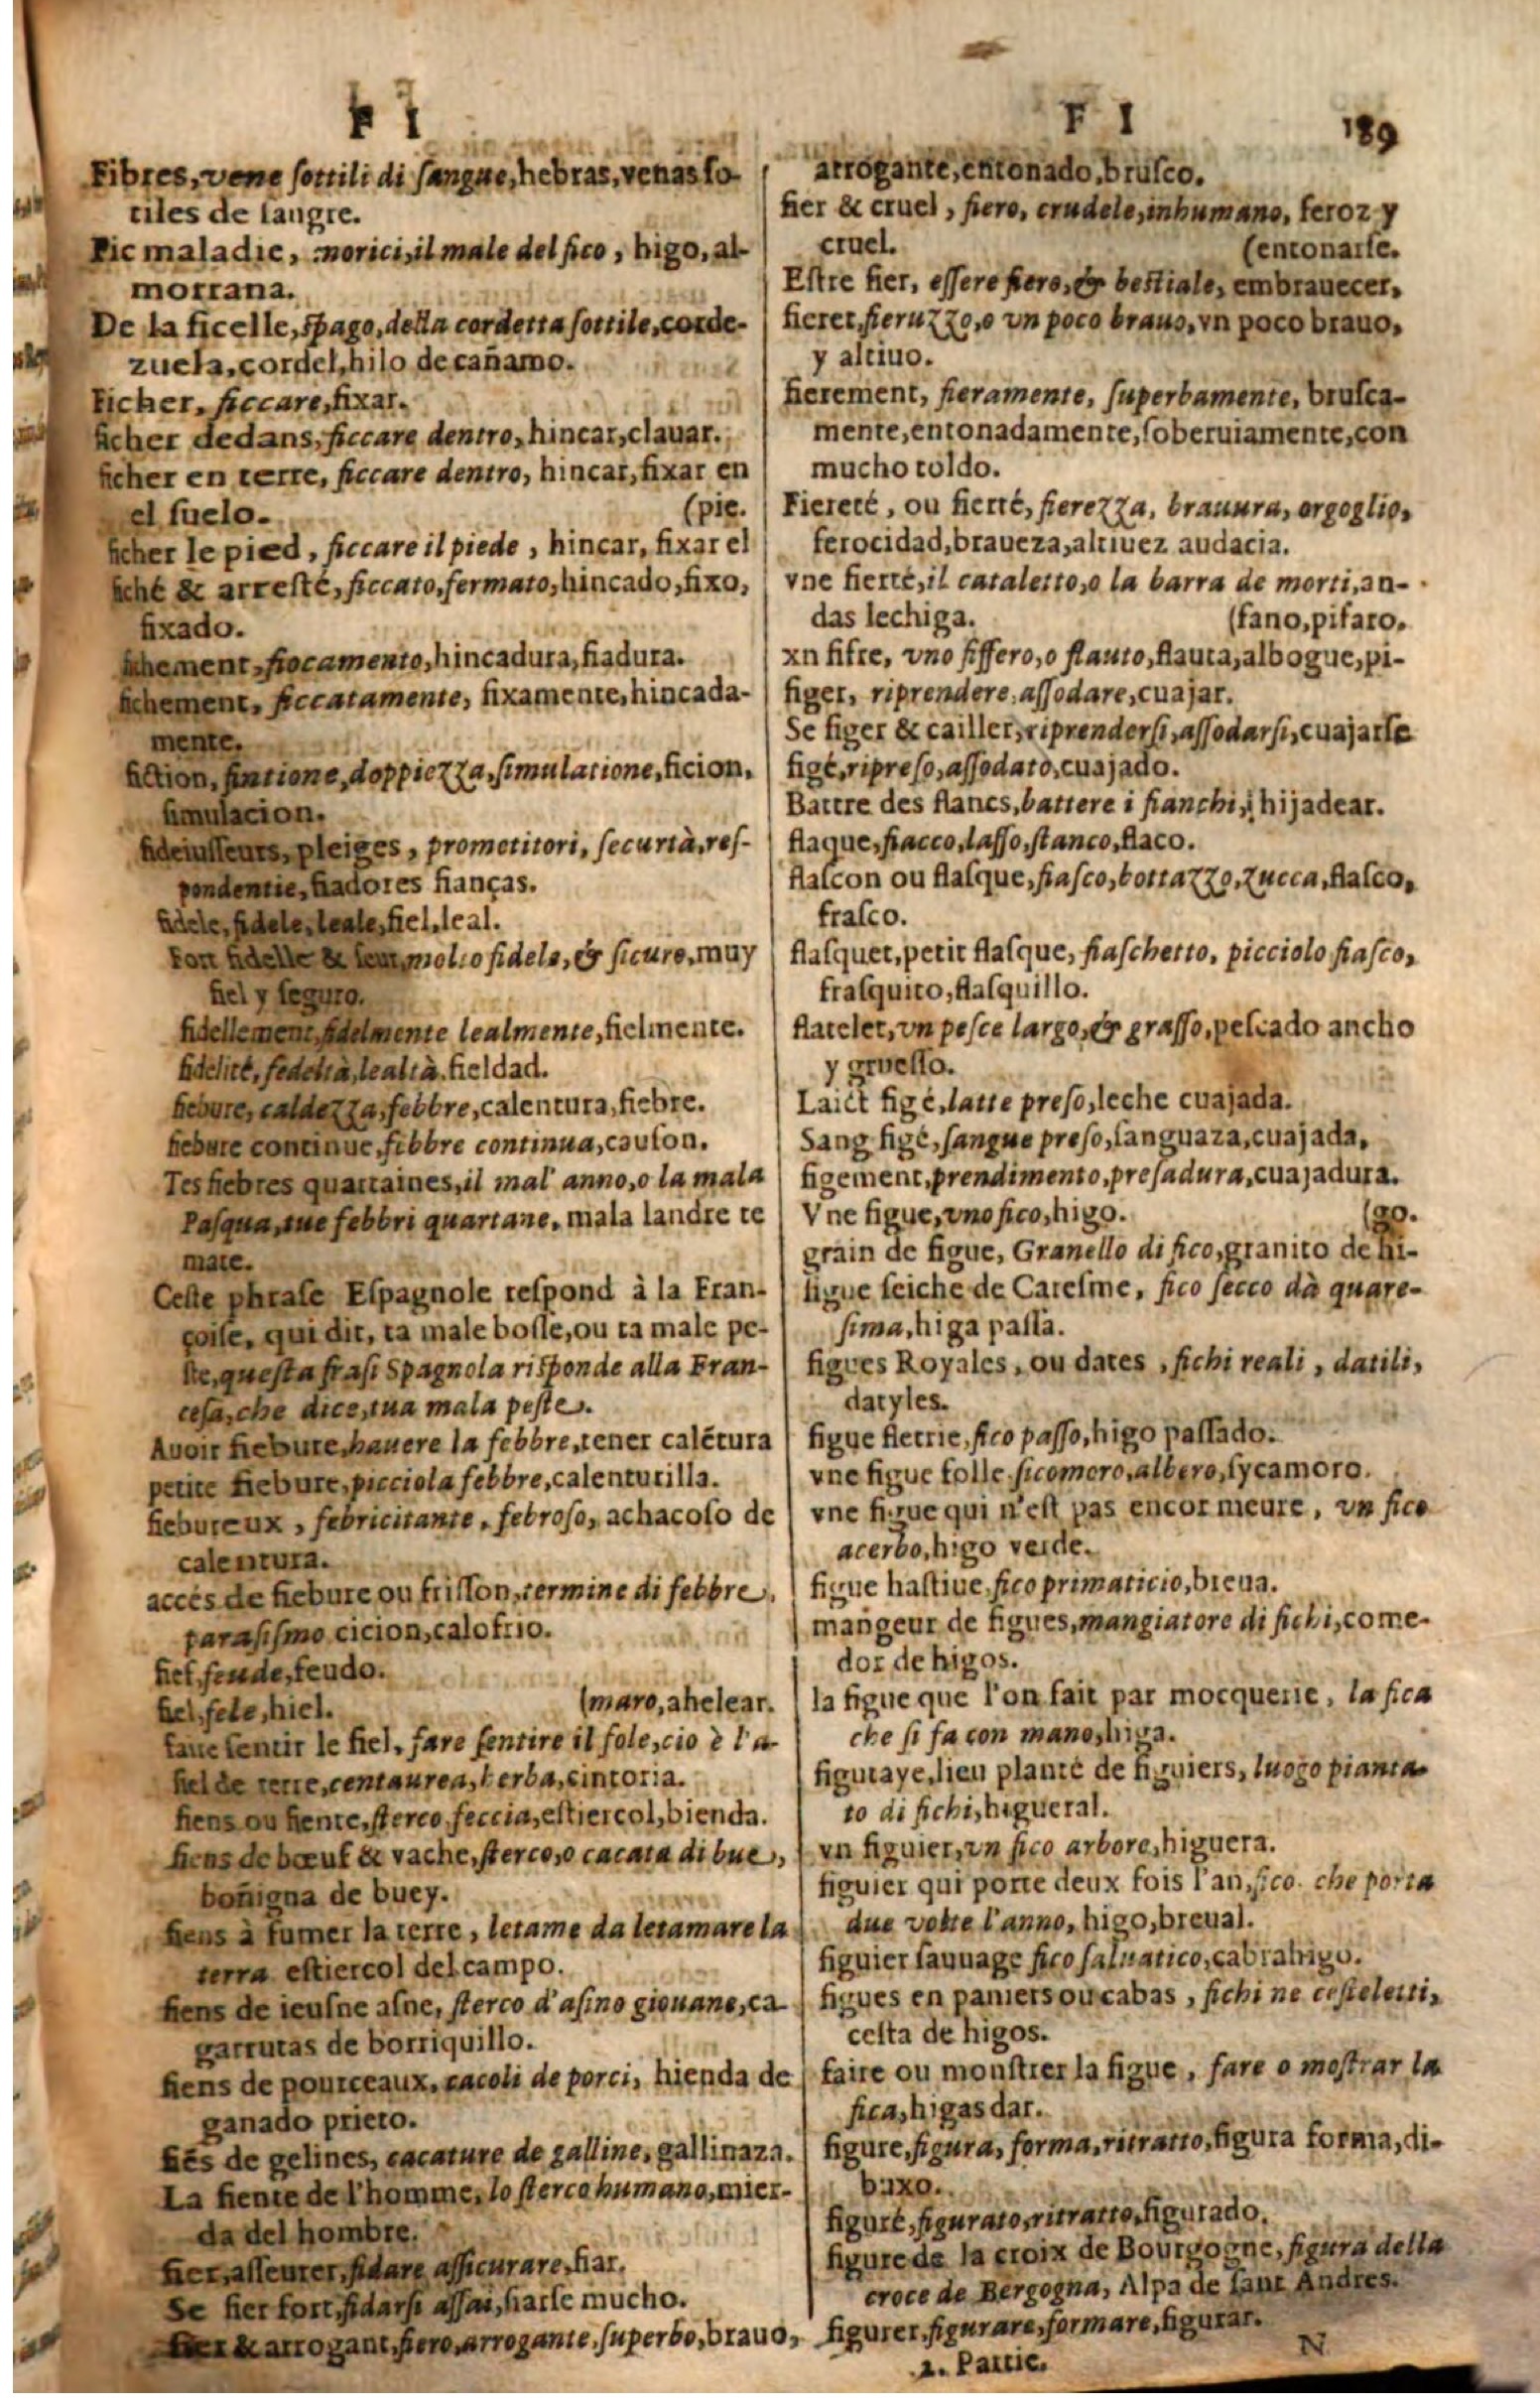 F I
Fibres, vene ſottili di ſangue, hebras, venas ſo-
tiles de ſangre.
Fic maladie, morici, il male del fico, higo, al-
morrana.
De la ficelle, ſpago, della cordetta ſottile, corde-
zuela, cordel, hilo de cañamo.
Ficher, ficcare, fixar.
ficher dedans, ficcare dentro, hincar, clauar.
ficher en terre, ficcare dentro, hincar, fixar en
el ſuelo. (pie.
ficher le pied, ficcare il piede, hincar, fixar el
fiché & arreſté, ficcato, fermato, hincado, fixo,
fixado.
fichement, fiocamento, hincadura, fiadura.
fichement, ficcatamente, fixamente, hincada-
mente.
fiction, fintione, doppiezza, ſimulatione, ficion,
ſimulacion.
fideiuſſeurs, pleiges, prometitori, ſecurtà, reſ-
pondentie, fiadores fianças.
fidele, fidele, leale, fiel, leal.
Fort fidelle & ſeur, molto fidele, & ſicuro, muy
fiel y ſeguro.
fidellement, fidelmente lealmente, fielmente.
fidelité, fedeltà, lealtà, fieldad.
fiebure, caldezza, febbre, calentura, fiebre.
fiebure continue, febbre continua, cauſon.
Tes fiebres quartaines, il mal' anno, o la mala
Paſqua, tue febbri quartane, mala landre te
mate.
Ceſte phraſe Eſpagnole reſpond à la Fran-
çoiſe, qui dit, ta male boſſe, ou ta male pe-
ſte, queſta fraſi Spagnola riſponde alla Fran-
ceſa, che dice, tua mala peſte.
Auoir fiebure, hauere la febbre, tener calẽtura
petite fiebure, picciola febbre, calenturilla.
fiebureux, febricitante, febroſo, achacoſo de
calentura.
accés de fiebure ou friſſon, termine di febbre,
paraſiſmo cicion, calofrio.
fief, feude, feudo.
fiel, fele, hiel. (maro, ahelear.
faire ſentir le fiel, fare ſentire il fole, cio è l'a-
fiel de terre, centaurea, herba, cintoria.
fiens ou fiente, ſterco, feccia, eſtiercol, bienda.
fiens de bœuf & vache, ſterco, o cacata di bue,
boñigna de buey.
fiens à fumer la terre, letame da letamare la
terra eſtiercol del campo.
fiens de ieuſne aſne, ſterco d'aſino giouane, ca-
garrutas de borriquillo.
fiens de pourceaux, cacoli de porci, hienda de
ganado prieto.
fiẽs de gelines, cacature de galline, gallinaza.
La fiente de l'homme, lo ſterco humano, mier-
da del hombre.
fier, aſſeurer, fidare aſſicurare, fiar.
Se fier fort, fidarſi aſſai, fiarſe mucho.
fier & arrogant, fiero, arrogante, ſuperbo, brauo,
F I 189
arrogante, entonado, bruſco.
fier & cruel, fiero, crudele, inhumano, feroz y
cruel. (entonarſe.
Eſtre fier, eſſere fiero, & beſtiale, embrauecer,
fieret, fieruzzo, o vn poco brauo, vn poco brauo,
y altiuo.
fierement, fieramente, ſuperbamente, bruſca-
mente, entonadamente, ſoberuiamente, con
mucho toldo.
Fiereté, ou fierté, fierezza, brauura, orgoglio,
ferocidad, braueza, altiuez audacia.
vne fierté, il cataletto, o la barra de morti, an-
das lechiga. (fano, pifaro.
xn fifre, vno fiffero, o flauto, flauta, albogue, pi-
figer, riprendere, aſſodare, cuajar.
Se figer & cailler, riprenderſi, aſſodarſi, cuajarſe
figé, ripreſo, aſſodato, cuajado.
Battre des flancs, battere i fianchi, hijadear.
flaque, fiacco, laſſo, ſtanco, flaco.
flaſcon ou flaſque, fiaſco, bottazzo, zucca, flaſco,
fraſco.
flaſquet, petit flaſque, fiaſchetto, picciolo fiaſco,
fraſquito, flaſquillo.
flatelet, vn peſce largo, & graſſo, peſcado ancho
y grueſſo.
Laict figé, latte preſo, leche cuajada.
Sang figé, ſangue preſo, ſanguaza, cuajada.
figement, prendimento, preſadura, cuajadura.
Vne figue, vno fico, higo. (go.
grain de figue, Granello di fico, granito de hi-
figue ſeiche de Careſme, fico ſecco dà quare-
ſima, higa paſſa.
figues Royales, ou dates, fichi reali, datili,
datyles.
figue fletrie, fico paſſo, higo paſſado.
vne figue folle ſicomoro, albero, ſycamoro.
vne figue qui n'eſt pas encor meure, vn fico
acerbo, higo verde.
figue haſtiue, fico primaticio, breua.
mangeur de figues, mangiatore di fichi, come-
dor de higos.
la figue que l'on fait par mocquerie, la fica
che ſi fa con mano, higa.
figuraye, lieu planté de figuiers, luogo pianta-
to di fichi, higueral.
vn figuier, vn fico arbore, higuera.
figuier qui porte deux fois l'an, fico che porta
due volte l'anno, higo, breual.
figuier ſauuage fico ſaluatico, cabrahigo.
figues en paniers ou cabas, fichi ne ceſteletti,
ceſta de higos.
faire ou monſtrer la figue, fare o moſtrar la
fica, higas dar.
figure, figura, forma, ritratto, figura forma, di-
buxo.
figuré, figurato, ritratto, figurado.
figure de la croix de Bourgogne, figura della
croce de Bergogna, Alpa de ſant Andres.
figurer, figurare, formare, figurar.
2. Partie. N